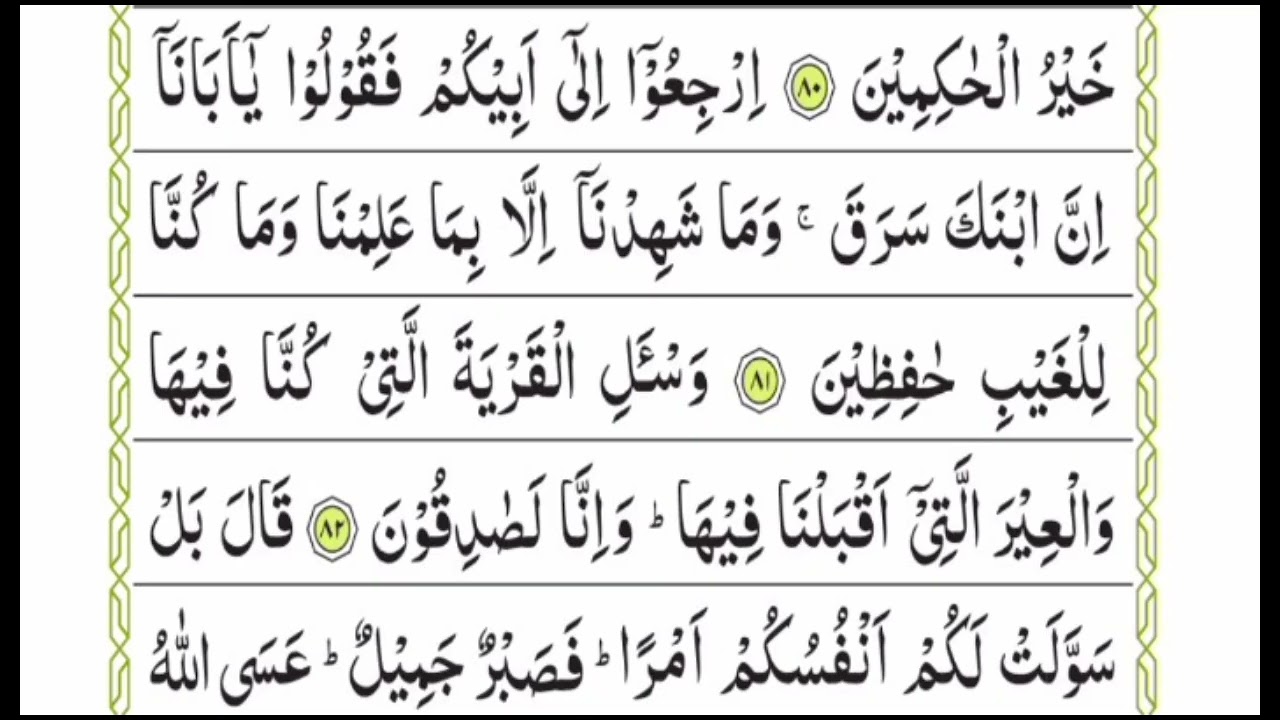 خَيْرُ الْحٰكِمِيْنَ ﴿٨٠﴾ اِرْجِعُوْۤا اِلٰۤى اَبِيْكُمْ فَقُوْلُوْا يٰۤاَبَانَاۤ
اِنَّ ابْنَكَ سَرَقَ ۚ وَمَا شَهِدْنَاۤ اِلَّا بِمَا عَلِمْنَا وَمَا كُنَّا
لِلْغَيْبِ حٰفِظِيْنَ ﴿٨١﴾ وَسْـَٔلِ الْقَرْيَةَ الَّتِيْ كُنَّا فِيْهَا
وَالْعِيْرَ الَّتِيْۤ اَقْبَلْنَا فِيْهَا ؕ وَاِنَّا لَصٰدِقُوْنَ ﴿٨٢﴾ قَالَ بَلْ
سَوَّلَتْ لَكُمْ اَنْفُسُكُمْ اَمْرًا ؕ فَصَبْرٌ جَمِيْلٌ ؕ عَسَى اللّٰهُ